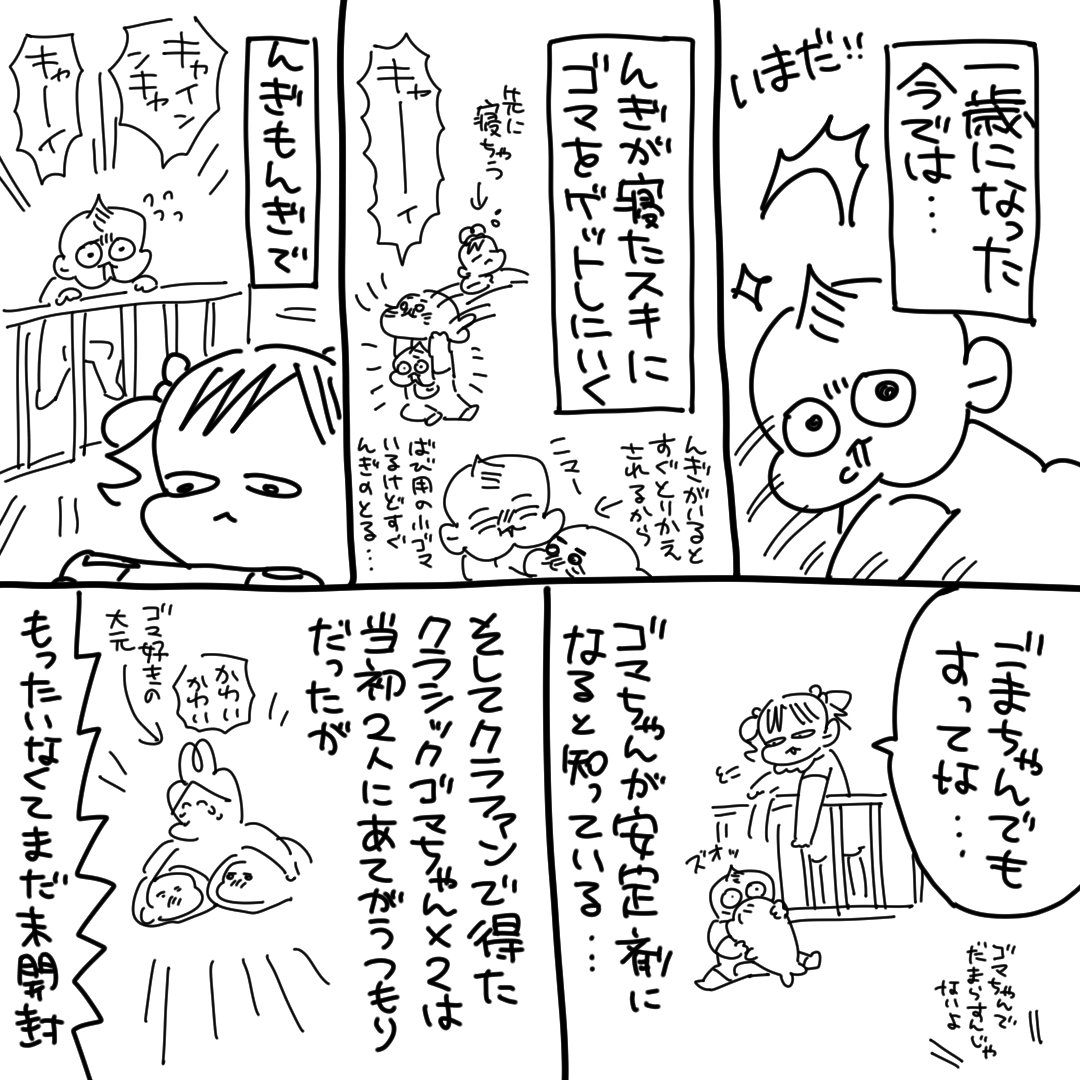 一歳になった
今では…
いまだ!!
んぎが寝たスキに
ゴマをゲットしにいく
先に
寝ちゃう
キャーーーィ
んぎがいると
すぐとりかえ
されるから
ニマー
ばび用の小ゴマ
いるけどすぐ
んぎのとる…
んぎもんぎで
キャイン
ンキャン
キャーーィ
ごまちゃんでも
すってな…
ズオッ
ゴマちゃんで
だまらすんじゃ
ないよ
ゴマちゃんが安定剤に
なると知っている…
そしてクラファンで得た
クラシックゴマちゃん×2は
当初2人にあてがうつもり
だったが
かわい
かわい
ゴマ好きの
大元
もったいなくてまだ未開封